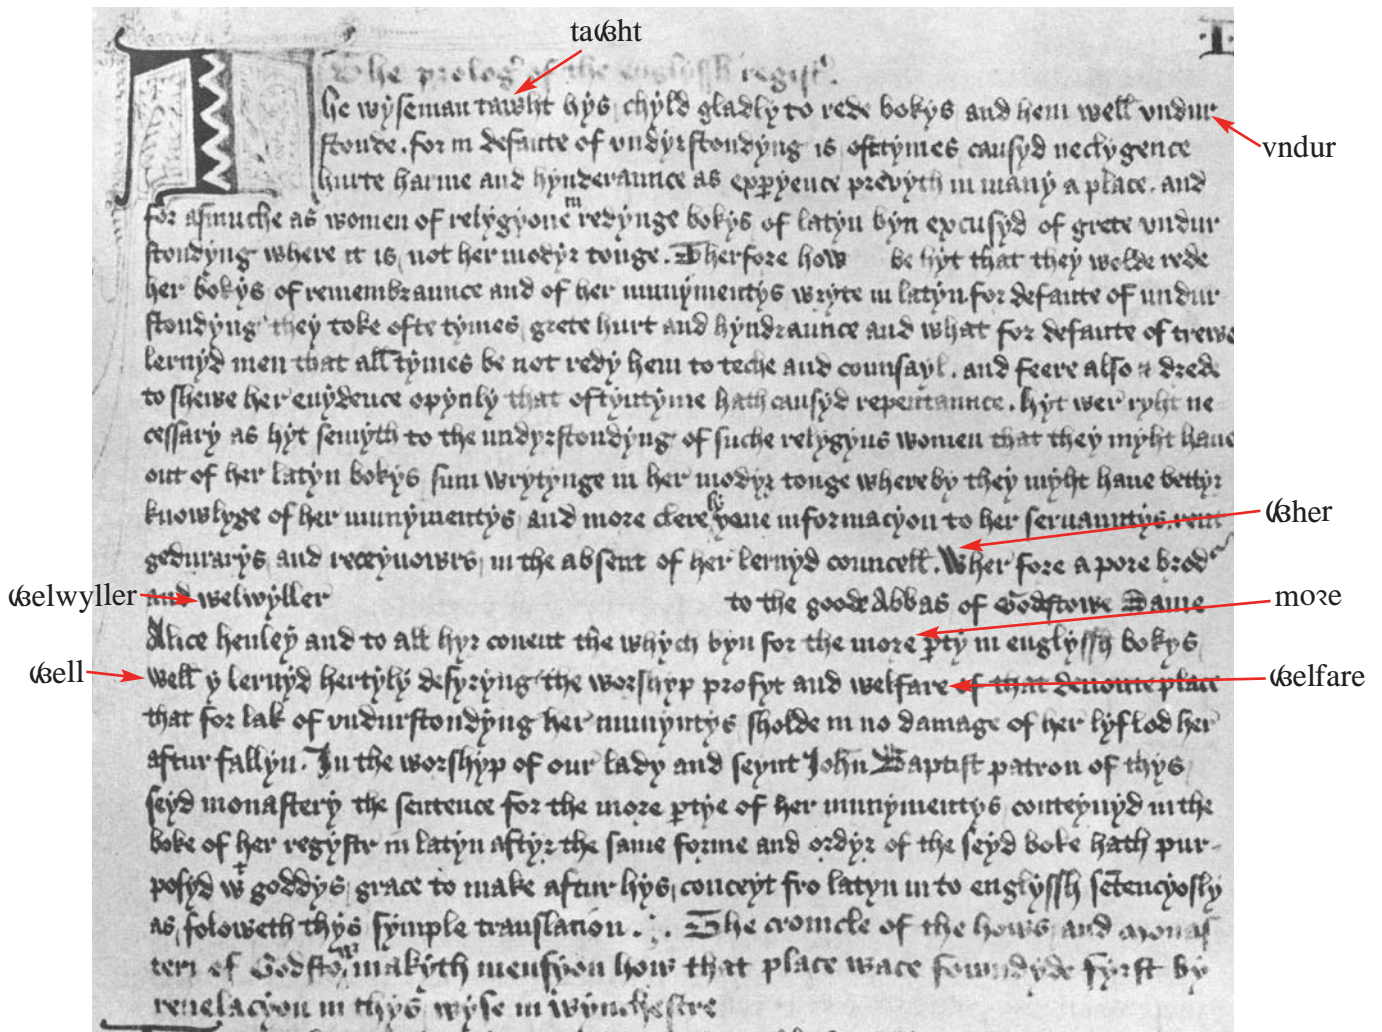 tawht
The prolog of the englyssh regist
he wyseman tawht hys chyld gladly to rede bokys and hem well vndur
stonde. for in defaute of vndyrstondyng is ofttymes causyd neclygence
hurte harme and hynderaunce as experyence prevyth in many a place. and
vndur
for asmuche as women of relygyone in redynge bokys of latyn byn excusyd of grete vndur
stondyng where it is not her modyr tonge. Therfore how be hyt that they wolde rede
her bokys of remembraunce and of her munymentys wryte in latyn for defaute of undur
stondyng they toke ofte tymes grete hurt and hyndraunce and what for defaute of trewe
lernyd men that all tymes be not redy hem to teche and counsayl. and feere also & drede
to shewe her euydence opynly that oftyntyme hath causyd repentaunce. hyt wer ryht ne
cessary as hyt semyth to the undyrstondyng of suche relygyus women that they myht haue
out of her latyn bokys sum wrytynge in her modyr tonge whereby they myht haue bettyr
knowlyge of her munymentys and more clerely yeue informacyon to her seruauntys rent
wher
gedurarys and receyuowrs in the absent of her lernyd councell. Wher fore a pore brod
welwyller
and welwyller to the goode Abbas of Godstowe Dame
more
Alice henley and to all hyr couent the whych byn for the more pty in englyssh bokys
well
well y lernyd hertyly desyryng the worshyp profyt and welfare of that deuoute place
welfare
that for lak of vndurstondyng her munyntys sholde in no damage of her lyflod her
aftur fallyn. In the worshyp of our lady and seynt John Baptist patron of thys
seyd monastery the sentence for the more ptye of her munymentys conteynyd in the
boke of her regystr in latyn aftyr the same forme and ordyr of the seyd boke hath pur-
posyd wt goddys grace to make aftur hys conceyt fro latyn in to englyssh setencyosly
as foloweth thys symple translacion. The cronicle of the hows and monas
teri of Godstow makyth mensyon how that place wace fowndyde fyrst by
reuelacyon in thys wyse in wynchestre